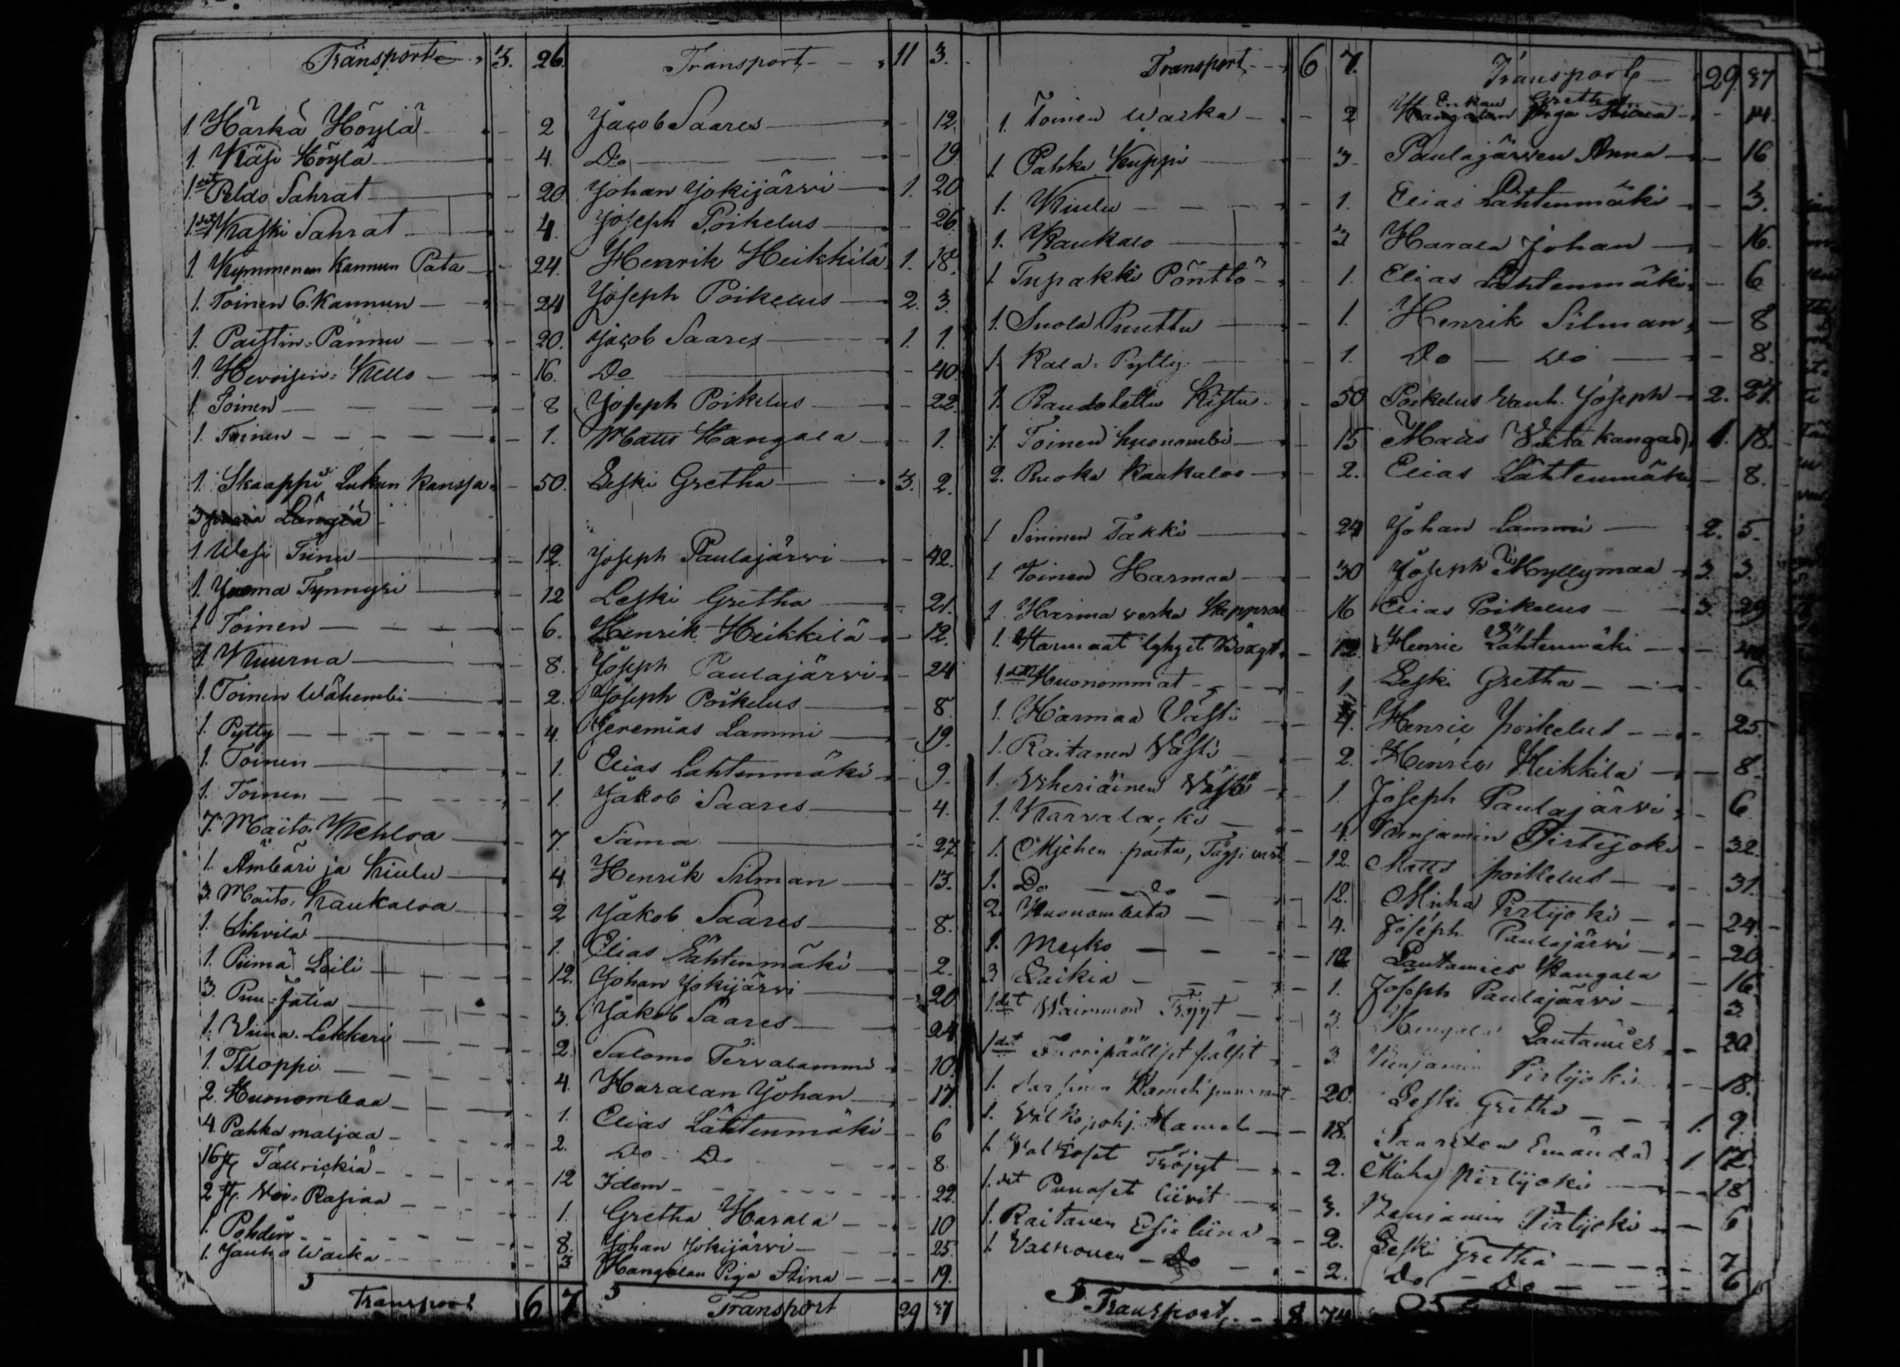 Transport 3. 26. Transport 11 3.
1 Härkä Höylä 2 Jacob Saares 12.
1. Käsi Höylä 4. Do 19
1 det Peldo Sahrat 20 Johan Jokijärvi 1. 20
1 det Kaski Sahrat 4. Joseph Poikelus 26.
1. Kymmenen Kannun Pata 24. Henrik Heikkilä 1. 18.
1. Toinen 6. Kannun 24 Joseph Poikelus 2. 3.
1. Paistin-Pannu 20. Jacob Saares 1 1.
1. Hevoisin-Kello 16. Do 40.
1. Toinen 8 Joseph Poikelus 22.
1. Toinen 1. Matts Kangala 1.
1. Skaappi Lukun kanssa 50. Leski Gretha 3. 2.
1 Wesi Tiinu 12. Joseph Paulajärvi 42.
1 Juoma Tynnyri 12 Leski Gretha 21.
1 Toinen 6. Henrik Heikkilä 12.
1 Kuurna 8. Joseph Paulajärvi 24
1. Toinen Wähembi 2. Joseph Poikelus 8.
1. Pytty 4. Jeremias Lammi 19.
1. Toinen 1. Elias Lähtenmäki 9.
1. Toinen 1. Jakob Saares 4.
7. Maito-Kehloa 7 Sama 27.
1. Ämbäri ja Kiulu 4 Henrik Silman 13.
3. Maito-Kaukaloa 2 Jakob Saares 8.
1. Sihvilä 1. Elias Lähtenmäki 2.
1. Piimä Leili 12. Johan Jokijärvi 20
3. Puu-Fatia 3. Jakob Saares 24
1. Wiina-Lekkeri 2. Salomo Tervalammi 10.
1. Tloppi 4. Haralan Johan 17.
2. Huonombaa 1. Elias Lähtenmäki 6
4. Pahka maljaa 2. Do Do 8.
16 Tallrickiä 12 Idem 22.
2 Voi-Rasiaa 1. Gretha Harala 10
1. Pohdin 8. Johan Jokijärvi 25.
1. Jauho Wacka 3 Kangalan Piga Stina 19.
Transport 6 7 Transport 29 37
Transport 6 7. Transport 29. 37
1. Toinen Wacka 2 Gretha 14.
1 Pahka Kuppi 3. Paulajärven Anna 16
1. Kiulu 1. Elias Lähtenmäki 3.
1. Kaukalo 3 Harala Johan 16.
1. Tupakki Pönttö 1. Elias Lähtenmäki 6
1. Suola Puuttu 1. Henrik Silman 8
1. Kala-Pytty 1. Do Do 8.
1. Raudotettu Kistu 50 Poikelus Vanh. Joseph 2. 27.
1. Toinen huonombi 15 Matts Viitakangas 1. 18.
2. Ruoka Kaukaloo 2. Elias Lähtenmäki 8.
1 Sininen Takki 24 Johan Lammi 2. 5.
1 Toinen Harmaa 30 Joseph Myllymaa 3. 3
1. Harma verka 16 Elias Poikelus 3. 29
1. Harmaat lyhyet 12 Henric Lähtenmäki
1 det Huonommat 1 Leski Gretha 6
1. Harmaa Västi 4. Henric Poikelus 25.
1. Raitanen Västi 2. Henric Heikkilä 8.
1. Viheriäinen Västi 1. Joseph Paulajärvi 6
1. Karvalacki 4. Benjamin Pirtijoki 32.
1. Miehen paita 12. Matts Poikelus 31.
1. Do Do 12. Micha Pirtijoki 24.
2. Huonombata 4. Joseph Paulajärvi 20
1. Mecko 12 Lautamies Kangala 16.
3 Lackia 1. Joseph Paulajärvi 3
1 det Waimmon Tröjyt 3. Kangala Lautamies 20.
1 det 3 Benjamin Pirtijoki 18.
1. 20. Leski Gretha 1. 9
1. Hamet 18. Saaresen Emändä 1 12.
1. Valkoset Tröjyt 2. Micha Pirtijoki 18
1. det Punaset liivit 3. Benjamin Pirtijoki 6
1. Raitanen Esiliina 2. Leski Gretha 7
1. Valkonen Do 2. Do Do 6
Transport 8 74